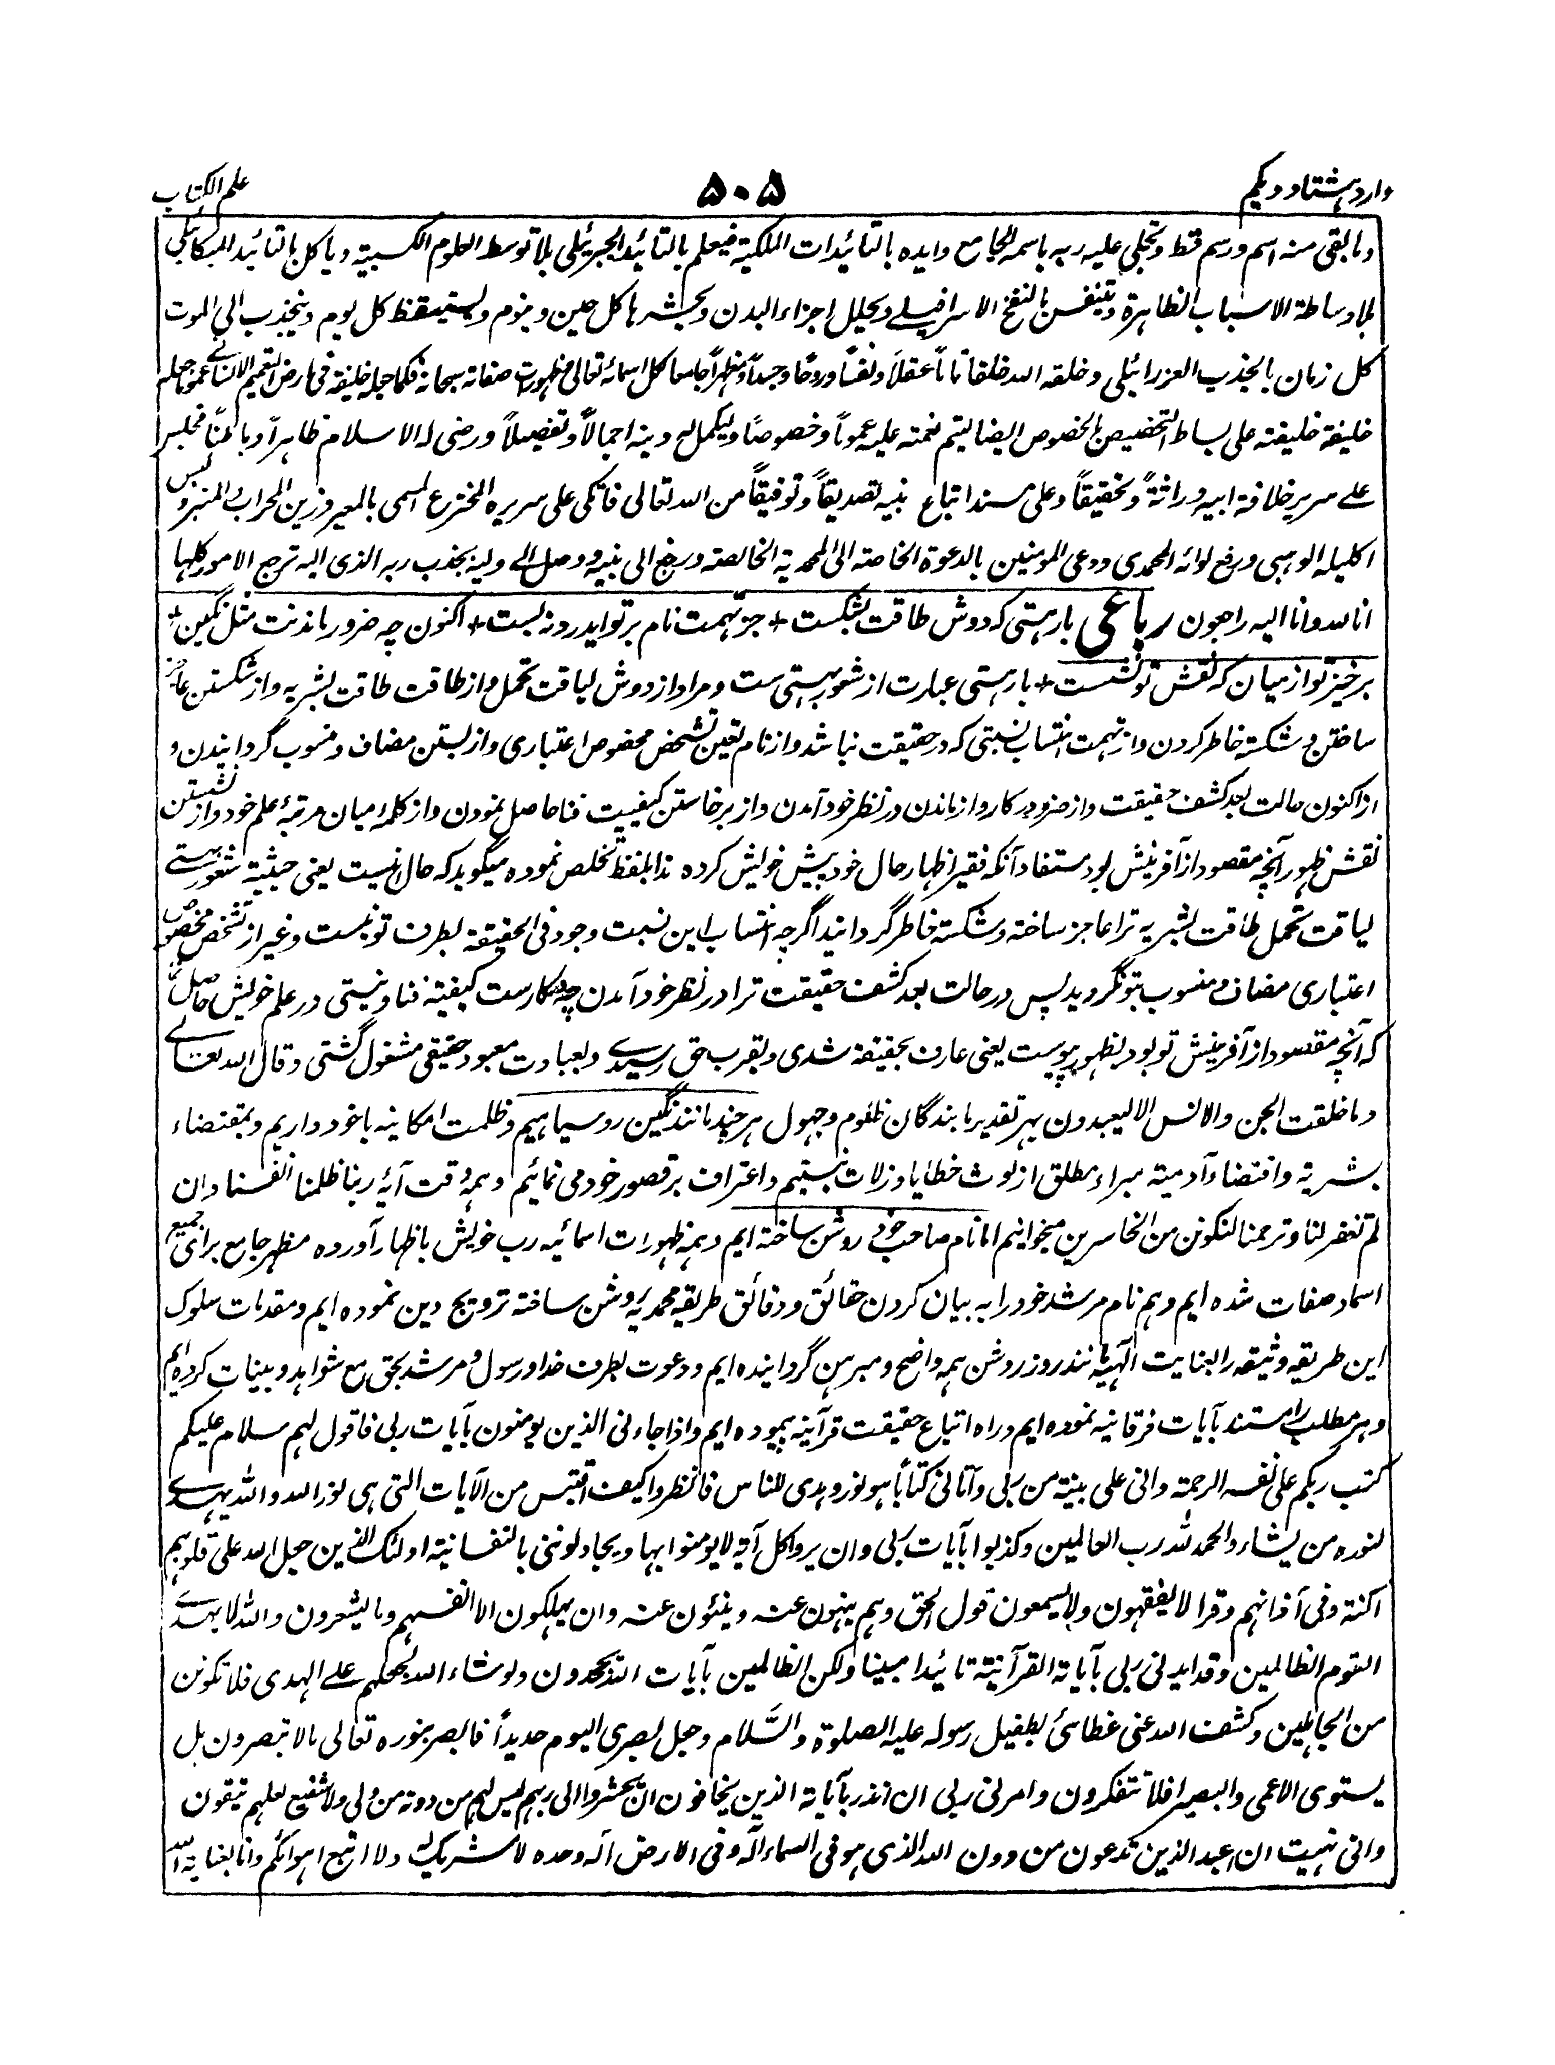 وارد هشتاد و یکم
۵۰۵
علم الکتاب
وما بقی منه اسم و رسم قط و تجلی علیه ربه باسمه الجامع وایده بالتائیدات الملکیة فیعلم بالتائید الجبرئیلی بلا توسط العلوم الکسبیة ویاکل بالتائید المیکائیلی
بلا وساطة الاسباب الظاهرة ویتنفس بالنفخ الاسرافیلے ویحلیل اجزاء البدن ویحشرها کل حین وینوم ویستیقظ کل یوم وینجذب الی الموت
کل زمان بالجذب العزرائیلی وخلقه الله خلقا تاماً عقلاً ونفساً وروحاً وجسداً ومظهراً جامعا کل اسمائه تعالی وظهورات صفاته سبحانه فکما جعله خلیفة فی ارض التعمیم الانسانے عموما جعله
خلیفة خلیفته علی بساط التخصیص بالخصوص ایضا لیتم نعمته علیه عموماً وخصوصاً ولیکمل له دینه اجمالاً وتفصیلاً ورضی له الاسلام ظاهراً وباطناً فجلس
علے سریر خلافة ابیه وراثةً وتحقیقاً وعلی مسند اتباع نبیه تصدیقاً وتوفیقاً من الله تعالی فاتکی علی سریره المخترع المسمی بالمعبر وزین المحراب والمنبر ولبس
اکلیله الوهبی ورفع لوائه المحمدی ودعی المومنین بالدعوة الخاصة الی المحمدیة الخالصة ورجع الی نبیه ووصل الے ولیه بجذب ربه الذی الیه ترجع الامور کلها
انا لله وانا الیه راجعون رباعی بار هستی که دوش طاقت بشکست + جز تهمت نام بر تو اید رد نه بست + اکنون چه ضرور ماندنت مثل نگین +
برخیز تو از میان که نقش تو نشست + بار هستی عبارت از شعور هستی ست و مراد از دوش لیاقت تحمل و از طاقت طاقت بشریه و از شکستن عاجز
ساختن و شکسته خاطر کردن و از تهمت انتساب نسبتی که در حقیقت نباشد و از نام تعین و تشخص مخصوص اعتباری و از بستن مضاف و منسوب گردانیدن و
از اکنون حالت بعد کشف حقیقت و از ضرور درکار و از ماندن در نظر خود آمدن و از برخاستن کیفییت فنا حاصل نمودن و از کلمه میان مرتبهٔ علم خود و از نشستن
نقش ظهور آنچه مقصود از آفرینش بود مستفاد آنکه فقیر اظهار حال خود پیش خویش کرده ندا بلفظ تخلص نموده میگوید که حال نیست یعنی حیثیة شعور هستے
لیاقت تحمل طاقت بشریه ترا عاجز ساخته و شکسته خاطر گردانید اگرچه انتساب این نسبت وجود فی الحقیقة بطرف تو نیست و غیر از تشخص مخصوص
اعتباری مضاف و منسوب بتو نگردید پس در حالت بعد کشف حقیقت ترا در نظر خود آمدن چه درکارست کیفیة فنا و نیستی در علم خویش حاصل کن
که آنچه مقصود از آفرینش تو بود بظهور پیوست یعنی عارف بحقیقة شدی و بقرب حق رسیدے و بعبادت معبود حقیقی مشغول گشتی و قال الله تعالے
وما خلقت الجن والانس الا لیعبدون بهر تقدیر ما بندگان ظلوم و جهول هر چند مانند نگین روسیاهیم و ظلمت امکانیه با خود داریم و بمقتضاء
بشریة و اقتضاء آدمیة مبراء مطلق از لوث خطایا و زلات نیستیم و اعتراف بر قصور خود می نمائیم و همه وقت آیه ربنا ظلمنا انفسنا وان
لم تغفر لنا وترحمنا لنکونن من الخاسرین میخوانیم اما نام صاحب خود روشن ساخته ایم و همه ظهورات اسمائیه رب خویش باظهار آورده مظهر جامع برای جمیع
اسما و صفات شده ایم و هم نام مرشد خود را به بیان کردن حقائق و دقائق طریقه محمدیه روشن ساخته ترویج دین نموده ایم و مقدمات سلوک
این طریقه وثیقه را بعنایت الٰهیة مانند روز روشن همه واضح و مبرهن گردانیده ایم و دعوت بطرف خدا و رسول و مرشد بحق مع شواهد و بینات کرده ایم
و هر مطلب را مستند بآیات فرقانیه نموده ایم و راه اتباع حقیقت قرآنیه پیموده ایم واذا جاءنی الذین یومنون بآیات ربی فاقول لهم سلام علیکم
کتب ربکم علی نفسه الرحمة وانی علی بینة من ربی وآتانی کتاباً هو نور وهدی للناس فانظروا کیف اقتبس من الآیات التی هی نور الله والله یهدے
لنوره من یشاء والحمد لله رب العالمین وکذبوا بآیات ربی وان یروا کل آیة لا یومنوا بها ویجادلوننی بالنفسانیة اولئک الذین جعل الله علی قلوبهم
اکنة وفی آذانهم وقرا لا یفقهون ولا یسمعون قول الحق وهم ینهون عنه وینئون عنه وان یهلکون الا انفسهم وما یشعرون والله لا یهدے
القوم الظالمین وقد ایدنی ربی بآیاته القرآنیة تائیدا مبینا ولکن الظالمین بآیات الله یجحدون ولو شاء الله لجمعهم علے الهدی فلا تکونن
من الجاهلین وکشف الله عنی غطائی بطفیل رسوله علیه الصلوة والسَّلام وجعل بصری الیوم حدیداً فابصر بنوره تعالی ما لا تبصرون بل
یستوی الاعمی والبصیر افلا تتفکرون وامرنی ربی ان انذر بآیاته الذین یخافون ان یحشروا الی ربهم لیس لهم من دونه من ولی ولا شفیع لعلهم یتقون
وانی نهیت ان اعبد الذین تدعون من دون الله الذی هو فی السماء اله وفی الارض اله وحده لا شریک له ولا اتبع اهوائکم وانا بعنایة الله